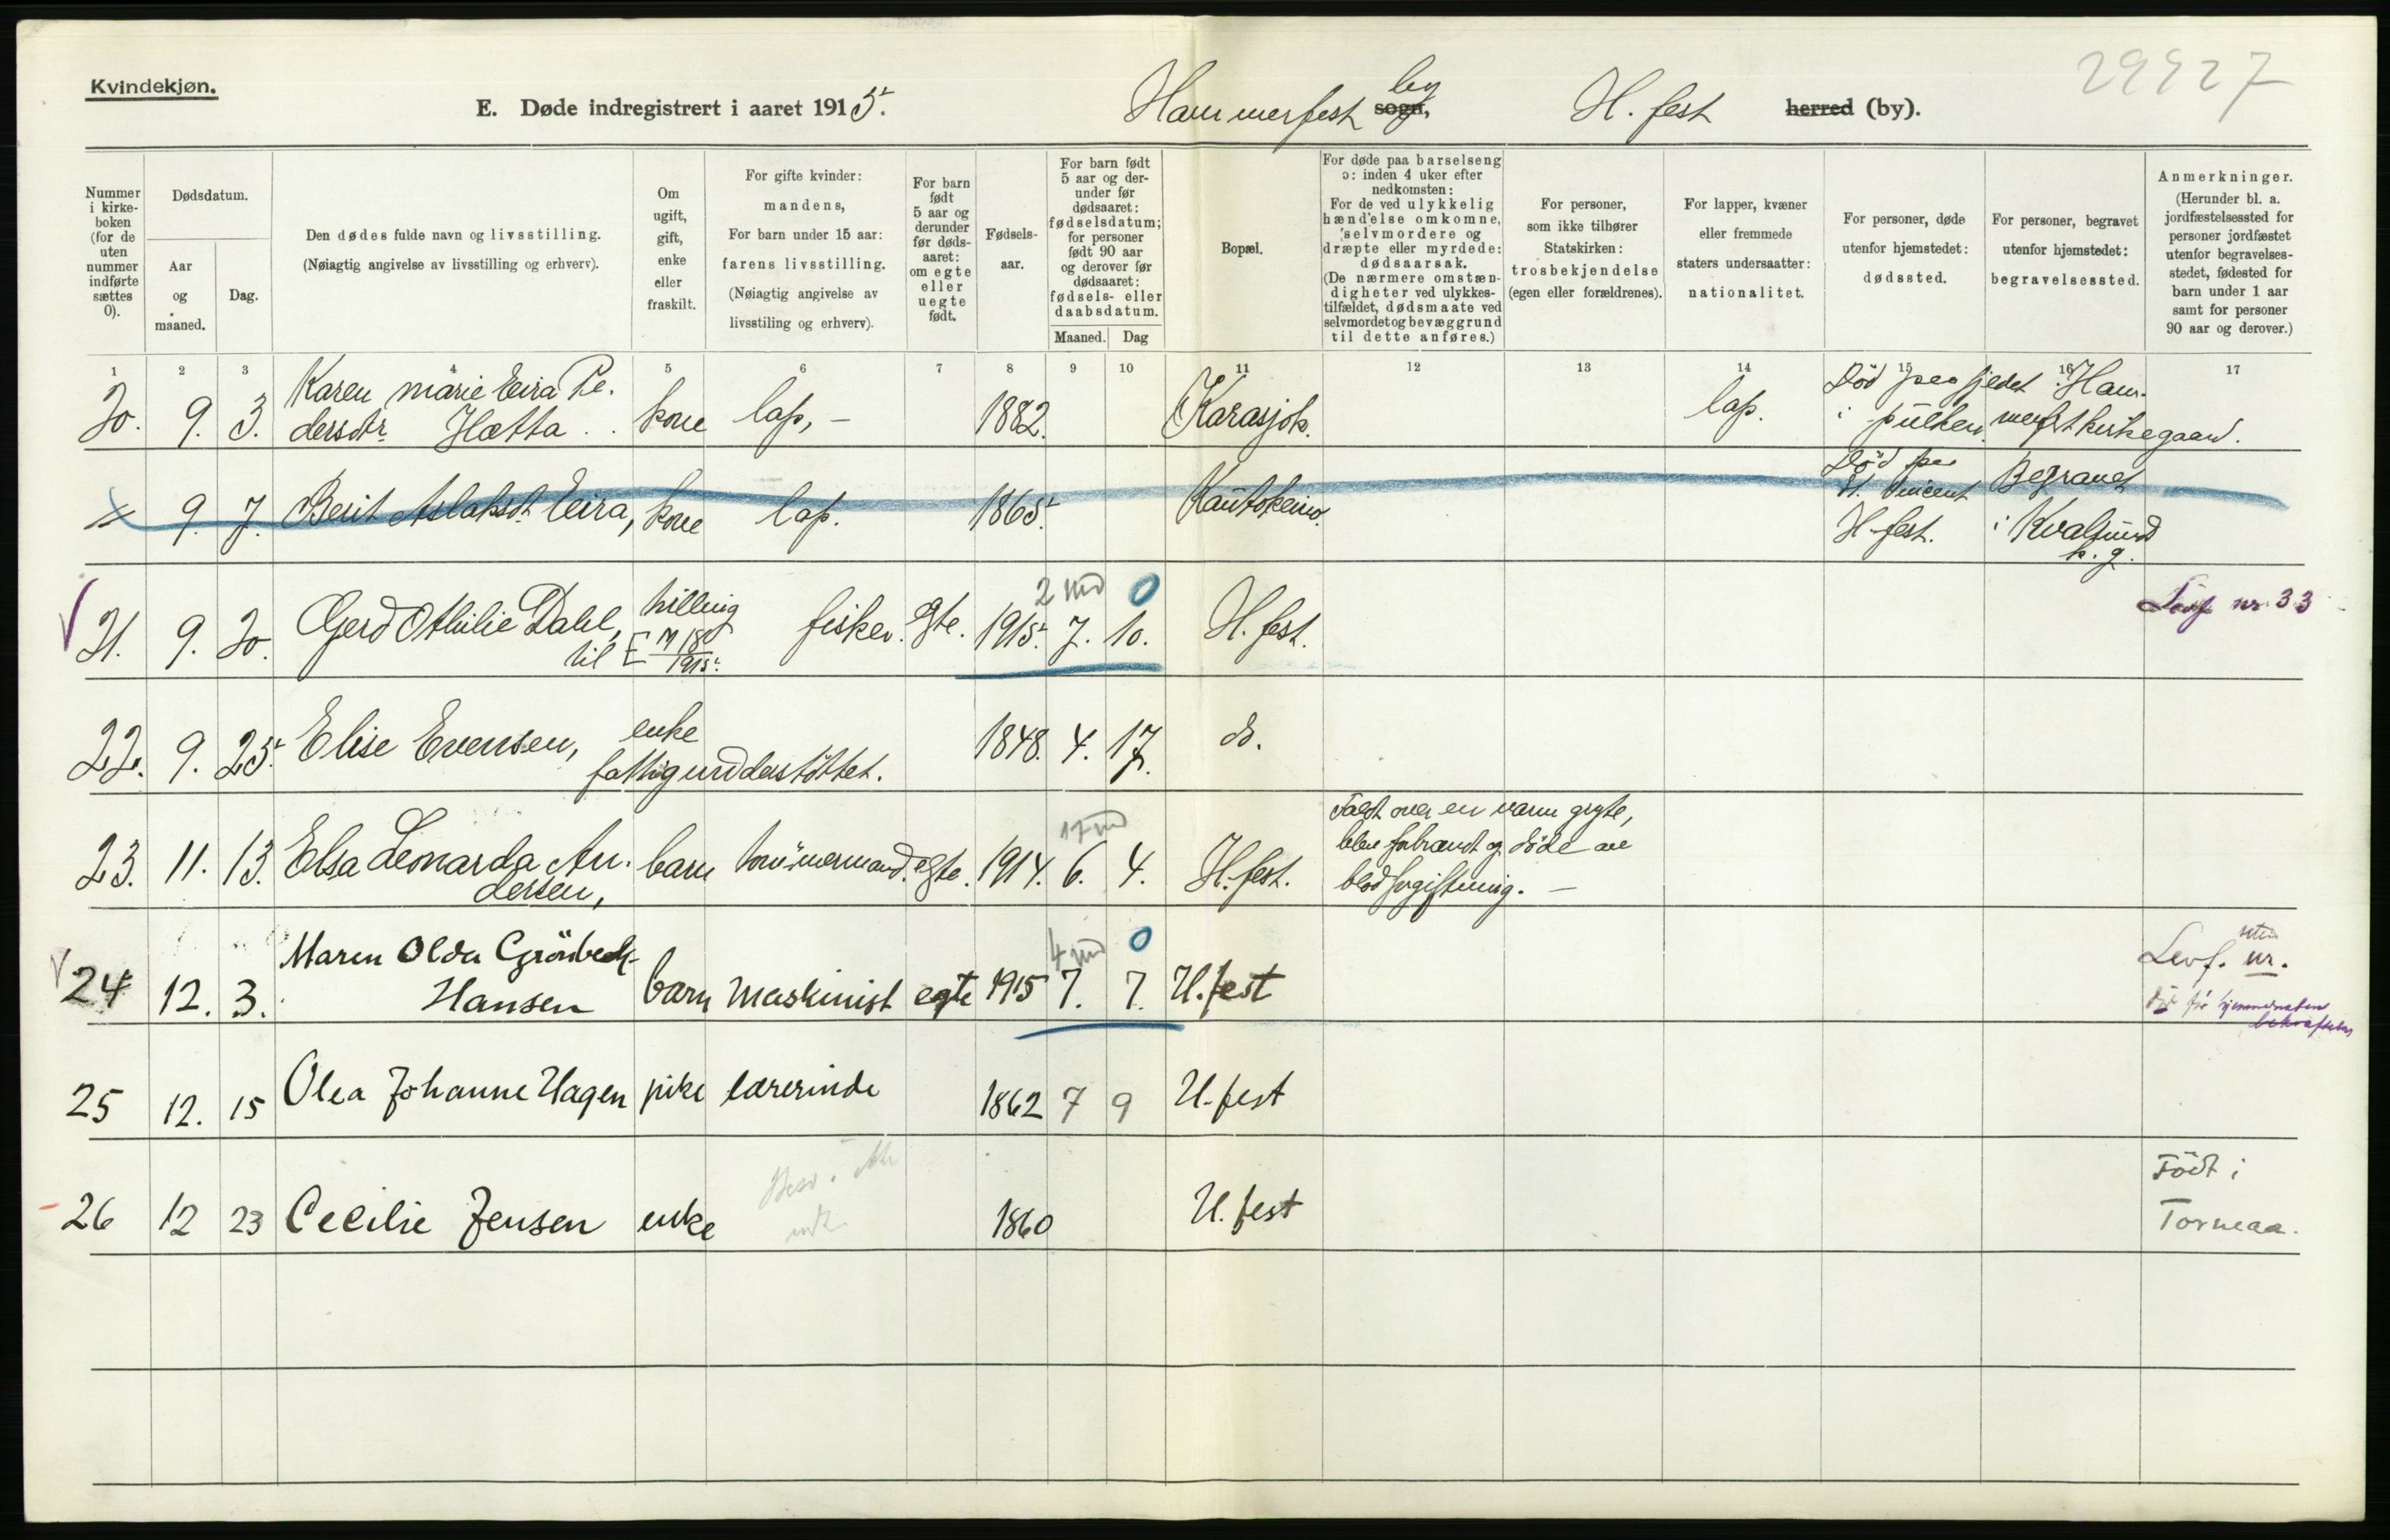 29927
Kvindekjøn.
E. Døde indregistrert i aaret 1915. Hammerfest by sogn, H. fest herred (by).
Nummer i kirkeboken (for de uten nummer indførte sættes 0).
Dødsdatum.
Aar og maaned.
Dag.
Den dødes fulde navn og livsstilling.
(Nøiagtig angivelse av livsstilling og erhverv).
Om ugift, gift, enke eller fraskilt.
For gifte kvinder: mandens,
For barn under 15 aar: farens livsstilling.
(Nøiagtig angivelse av livsstiling og erhverv).
For barn født 5 aar og derunder før dødsaaret: om egte eller uegte født.
Fødselsaar.
For barn født 5 aar og derunder før dødsaaret: fødselsdatum; for personer født 90 aar og derover før dødsaaret: fødsels- eller daabsdatum.
Maaned. Dag
Bopæl.
For døde paa barselseng ɔ: inden 4 uker efter nedkomsten:
For de ved ulykkelig hændelse omkomne, selvmordere og dræpte eller myrdede: dødsaarsak.
(De nærmere omstændigheter ved ulykkestilfældet, dødsmaate ved selvmordet og bevæggrund til dette anføres.)
For personer, som ikke tilhører Statskirken: trosbekjendelse (egen eller forældrenes).
For lapper, kvæner eller fremmede staters undersaatter: nationalitet.
For personer, døde utenfor hjemstedet: dødssted.
For personer, begravet utenfor hjemstedet: begravelsessted.
Anmerkninger.
(Herunder bl. a. jordfæstelsessted for personer jordfæstet utenfor begravelsesstedet, fødested for barn under 1 aar samt for personer 90 aar og derover.)
1 2 3 4 5 6 7 8 9 10 11 12 13 14 15 16 17
20. 9. 3. Karen Marie Eira Pedersdtr Hætta kone lap, – 1882. Karasjok. lap. Død paa fjeldet i pulken. Hammerfest kirkegaard.
9. 7. Berit Aslaksdt Eira, kone lap. 1865. Kautokeino. Død paa St. Vincent H-fest. Begravet i Kvalsund k. g.
21. 9. 20. Gerd Othilie Dahl, tvilling til [M 18 1915. fisker. egte. 1915. 7. 10. 2 md 0 H. fest. Levf nr. 33
22. 9. 25. Elise Evensen, enke fattigunderstöttet. 1848. 4. 17. do.
23. 11. 13. Elsa Leonarda Andersen, barn tömmermand. egte. 1914. 6. 4. 17 md H. fest. Faldt over en varm gryte, blev forbrændt og döde av blodforgiftning. –
24 12. 3. Maren Olda Grönbech-Hansen barn maskinist egte 1915 7. 7. 4 md 0 H. fest Levf. uten nr. död før hjemmedaaben bekræftedes
25 12. 15 Olea Johanne Hagen pike lærerinde 1862 7 9 H. fest
26 12 23 Cecilie Jensen enke 1860 H. fest Födt i Torneaa.